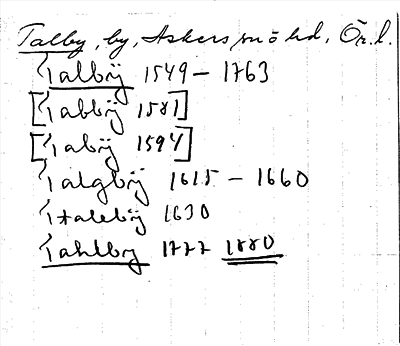 Talby, by, Askers sn o hd, Ör. l.
Talbÿ 1549 – 1763
[Tabbÿ 1581]
[Tabÿ 1594]
Talgbÿ 1615 – 1660
Stalebÿ 1630
Tahlby 1777 1880